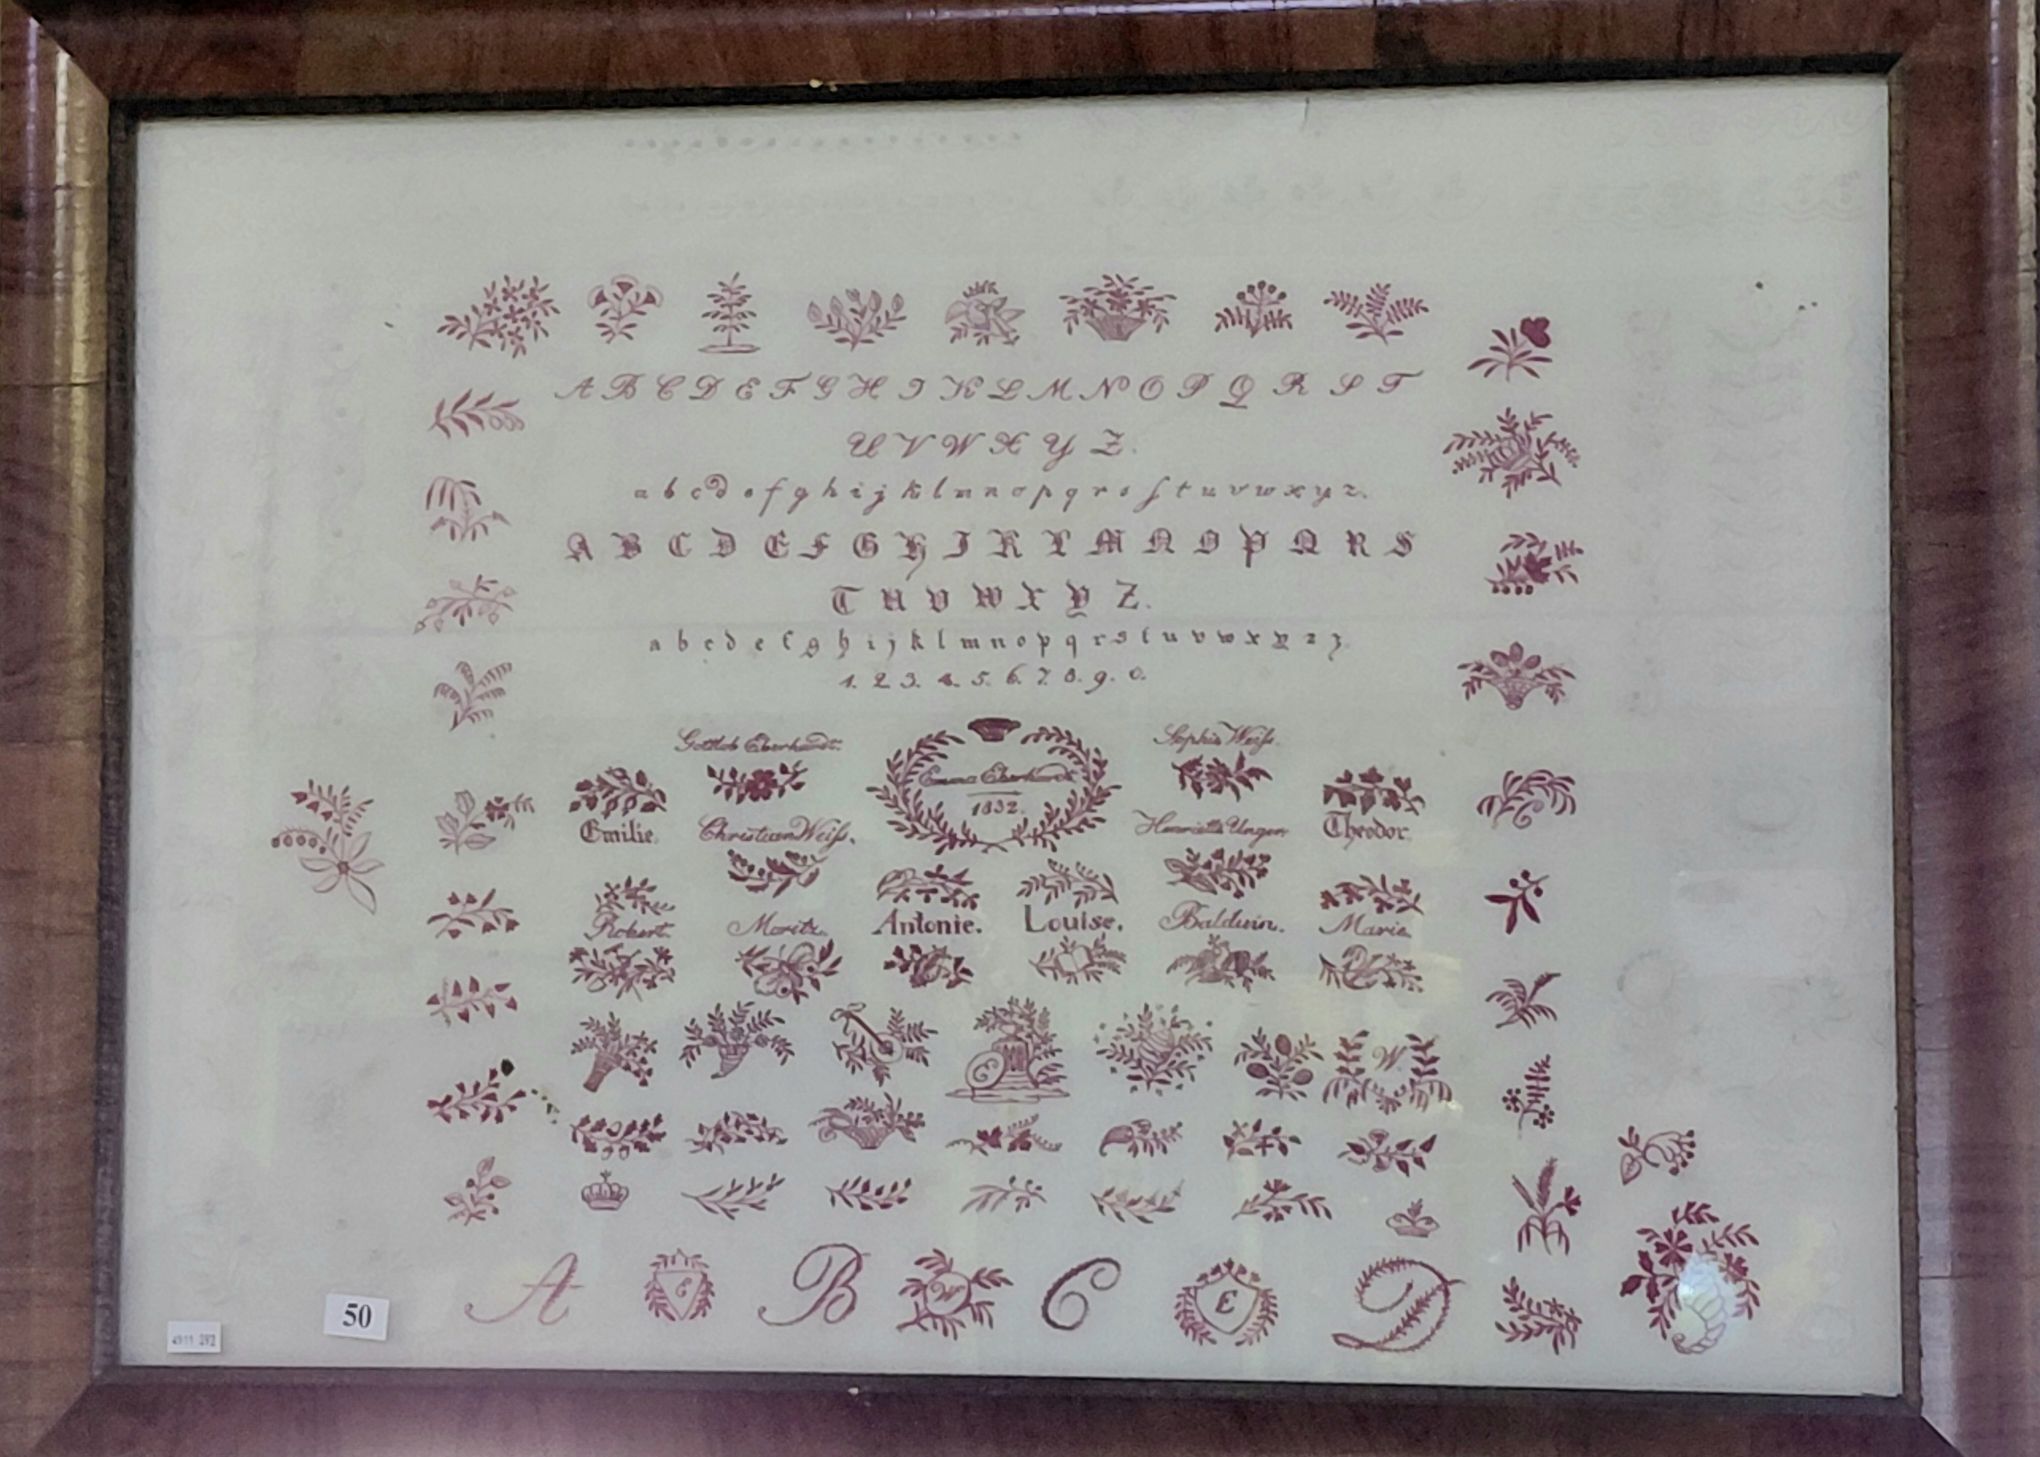 A B C D E F G H I K L M N O P Q R S T
U V W X Y Z.
a b c d e f g h i j k l m n o p q r s ſ t u v w x y z.
A B C D E F G H I K L M N O P Q R S
T U V W X Y Z.
a b c d e f g h i j k l m n o p q r s t u v w x y z z.
1. 2. 3. 4. 5. 6. 7. 8. 9. 0.
Gottlob Eberhardt. Sophie Weiß.
Emma Eberhardt
1832.
Emilie. Christian Weiß. Henriette Unger. Theodor.
Robert. Moritz. Antonie. Louise. Balduin. Marie.
E W
A E B W C E D
50